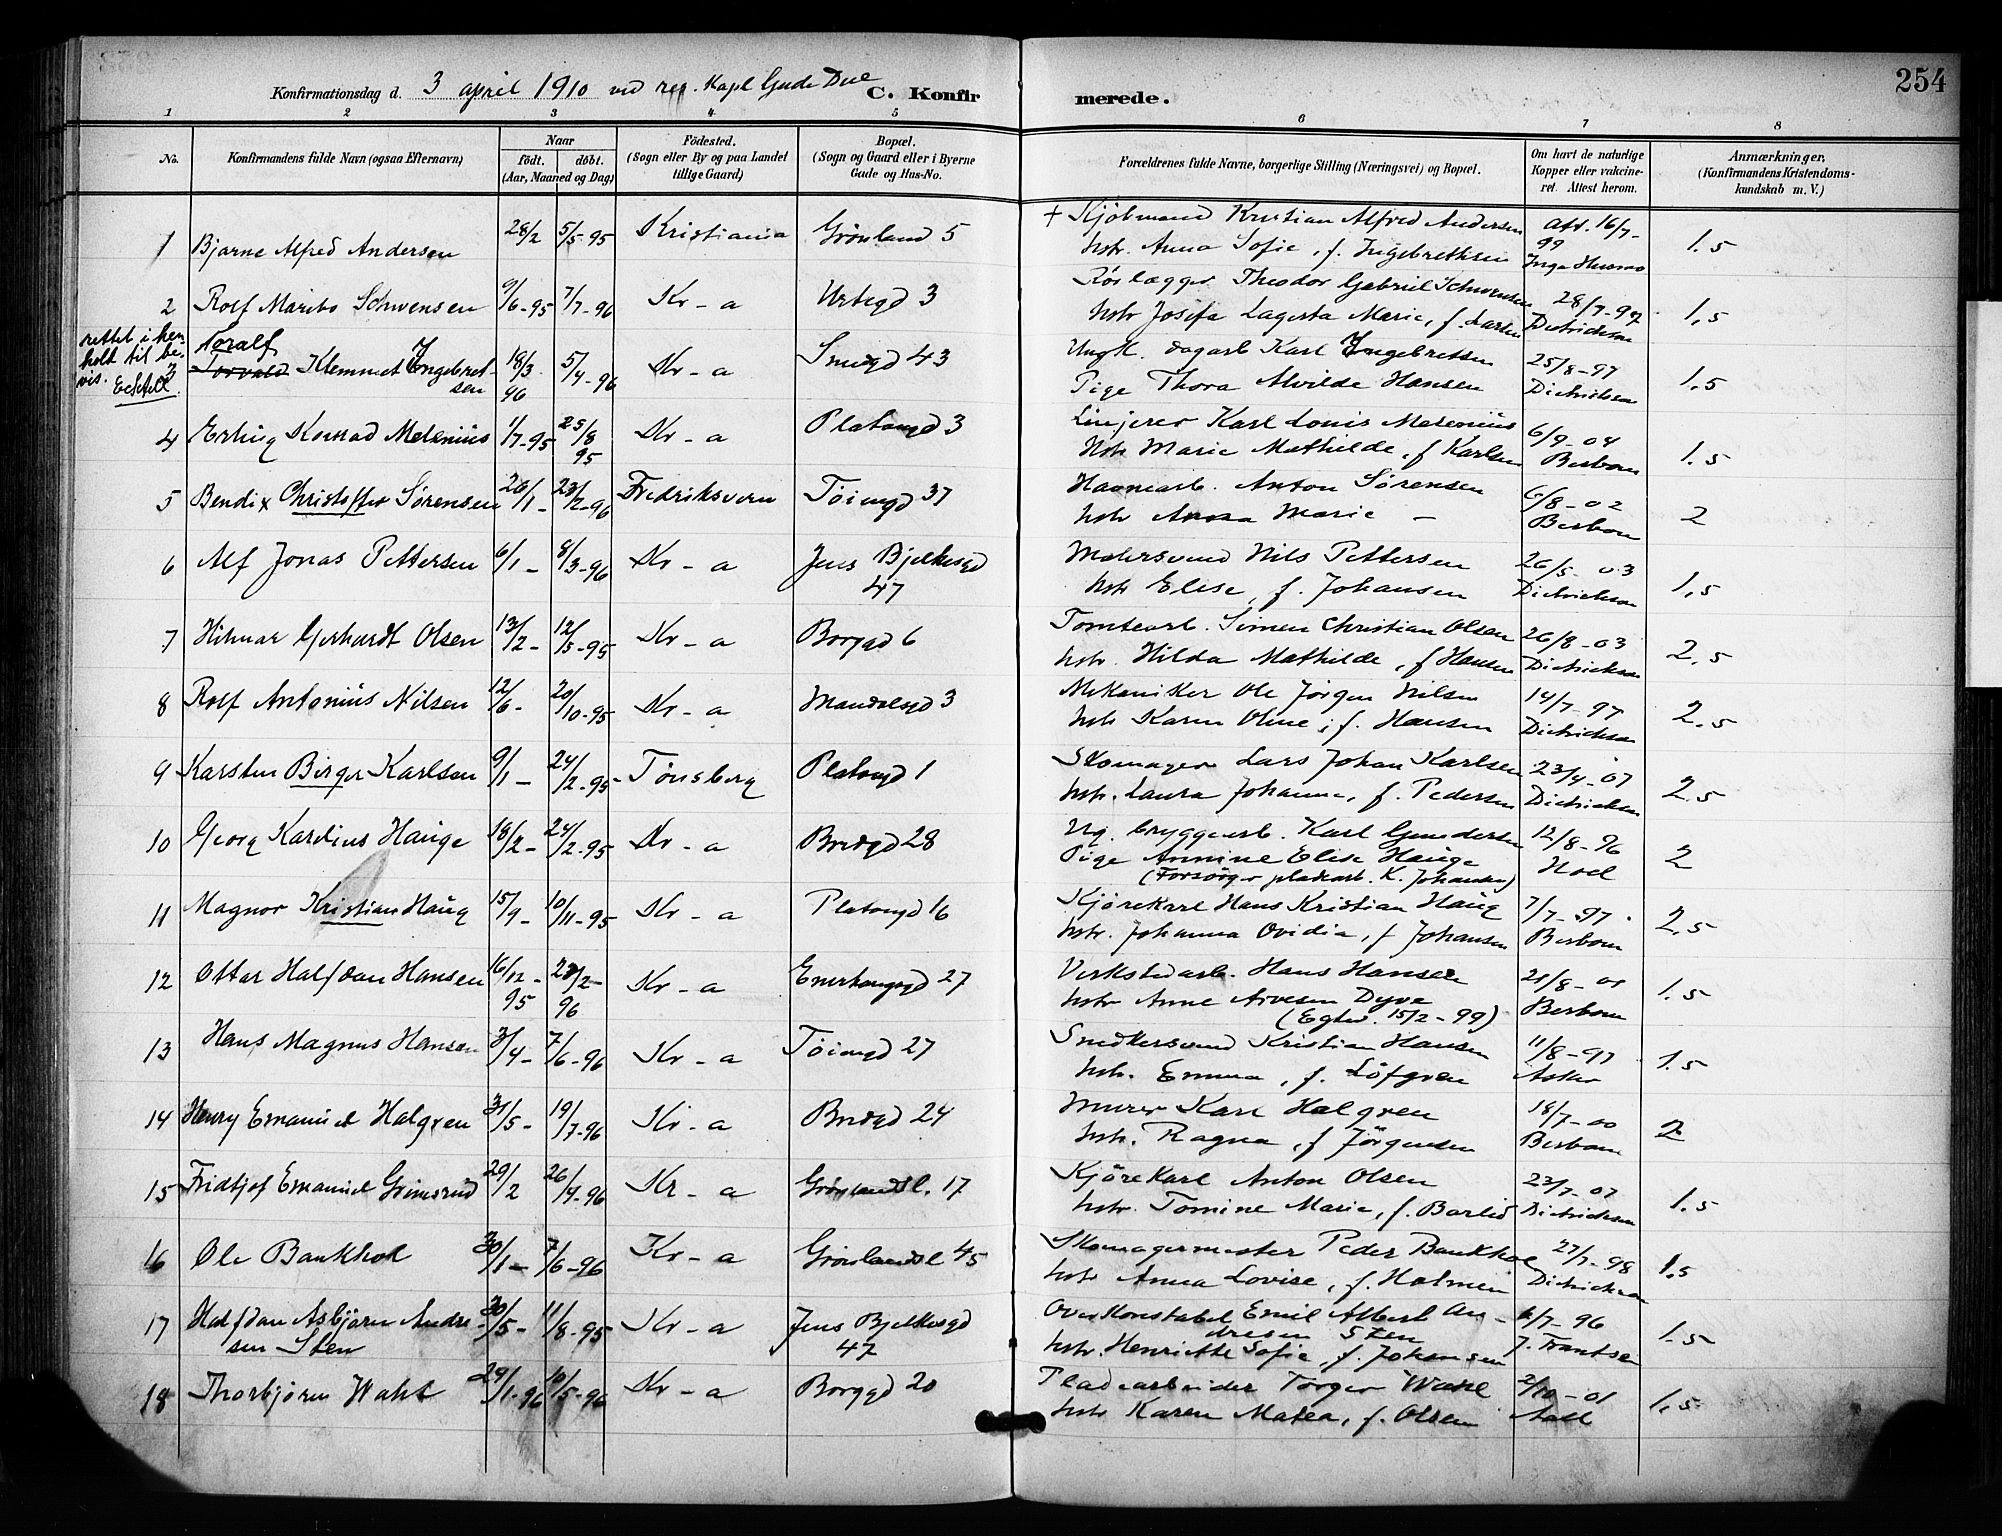 254
Konfirmationsdag d. 3 april 1910 ved res. Kapl Gude Due C. Konfirmerede.
1 2 3 4 5 6 7 8
No. Konfirmandens fulde Navn (ogsaa Efternavn) Naar født. døbt. (Aar, Maaned og Dag) Födested. (Sogn eller By og paa Landet tillige Gaard) Bopæl. (Sogn og Gaard eller i Byerne Gade og Hus-No. Forældrenes fulde Navne, borgerlige Stilling (Næringsvei) og Bopæl. Om havt de naturlige Kopper eller vakcineret. Attest herom. Anmærkninger, (Konfirmandens Kristendomskundskab m. V.)
1 Bjarne Alfred Andersen 28/2 5/5-95 Kristiania Grønland 5 + Kjöbmand Kristian Alfred Andersen Att. 16/7-99 1.5
hstr. Anna Sofie, f. Ingebrethsen
2 Rolf Maribo Schwensen 9/6-95 7/7-96 Kr-a Urtegd 3 Rörlægger Theodor Gabriel Schwensen 28/7-97 1,5
hstr Josefa Lagerta Marie, f. Larsen Dietrichson
rettet i henhold til bevis. Eckell
3 Toralf Torvald Klemmet Yngebretsen 18/3 96 5/4-96 Kr-a Smedgd 43 Ungk. dagarb Karl Yngebretsen 25/8-97 1.5
Pige Thora Alvilde Hansen Dietrichson
4 Erling Konrad Melenius 1/7-95 25/8 95 Kr-a Platougd 3 Linjerer Karl Louis Melenius 6/9-04 1.5
hstr Marie Mathilde, f Karlsen Berbom
5 Bendix Christoffer Sörensen 26/1- 23/2-96 Fredriksvern Töiengd 37 Havnearb. Anton Sörensen 6/8-02 2
hstr Anna Marie - Berbom
6 Alf Jonas Pettersen 6/1- 8/3-96 Kr-a Jens Bjelkesgd 47 Malersvend Nils Pettersen 26/5-03 1,5
hstr Elise, f. Johansen Dietrichson
7 Hilmar Gerhardt Olsen 13/2- 12/5-95 Kr-a Borggd 6 Tomtearb. Simen Christian Olsen 26/8-03 2,5
hstr. Hilda Mathilde, f Hansen Dietrichson
8 Rolf Antonius Nilsen 12/6- 20/10-95 Kr-a Mandalsgd 3 Mekaniker Ole Jörgen Nilsen 14/7-97 2.5
hstr Karen Oline, f. Hansen Dietrichson
9 Karsten Birger Karlsen 9/1- 24/2-95 Tönsberg Platougd 1 Skomager Lars Johan Karlsen 23/4-07 2.5
hstr. Laura Johanne, f. Pedersen Dietrichson
10 Georg Karelius Hauge 18/2- 24/2-95 Kr-a Bredgd 28 Ug. bryggearb. Karl Gundersen 12/8-96 2
Pige Annine Elise Hauge
(Forsörger pladearb. K. Johansen)
11 Magnor Kristian Haug 15/9- 10/11-95 Kr-a Platougd 16 Kjörekarl Hans Kristian Haug 7/7-97 2,5
hstr. Johanna Ovidia, f Johansen Berbom
12 Ottar Halfdan Hansen 16/12-95 23/2-96 Kr-a Enerhaugsgd 27 Verkstedarb. Hans Hansen 1.5
hstr Anne Arvesen Dyve Berbom
(Egtev. 15/2-99)
13 Hans Magnus Hansen 3/4- 7/6-96 Kr-a Töiengd 27 Snedkersvend Kristian Hansen 11/8-97 1.5
hstr. Emma, f. Löfgren
14 Henry Emanuel Halgren 31/5- 19/7-96 Kr-a Bredgd 24 Murer Karl Halgren 18/7-00 2
hstr. Ragna, f Jörgensen Berbom
15 Fridtjof Emanuel Grimsrud 29/2 26/4-96 Kr-a Grønlandsl. 17 Kjörekarl Anton Olsen 23/7-07 1.5
hstr. Tomine Marie, f. Barlid Dietrichson
16 Ole Bankhol 30/1- 7/6-96 Kr-a Grønlandsl 45 Skomagermester Peder Bankhol 27/7-98 1.5
hstr Anna Lovise, f. Holmen Dietrichson
17 Halfdan Asbjörn Andresen Sten 30/5- 11/8-95 Kr-a Jens Bjelkesgd 47 Overkonstabel Emil Albert Andresen Sten 6/7-96 1.5
hstr. Henriette Sofie, f. Johansen J. Frantsen
18 Thorbjörn Wahl 29/1-96 10/5-96 Kr-a Borggd 20 Pladearbeider Torger Wahl 2/10-01 1.5
hstr Karen Matea, f. Olsen Aall